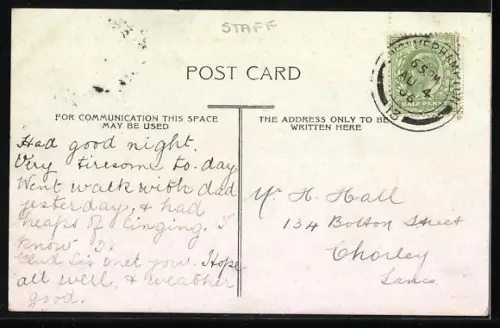 STAFF
POST CARD
FOR COMMUNICATION THIS SPACE
MAY BE USED
THE ADDRESS ONLY TO BE
WRITTEN HERE
WOLVERHAMPTON
AU 4
HALF PENNY
Had good night.
Very tiresome to-day
Went walk with dad
yesterday, & had
heaps of singing. I
know
met you. Hope
all well, & weather
good.
Mr H. Hall
134 Bolton Street
Chorley
Lancs